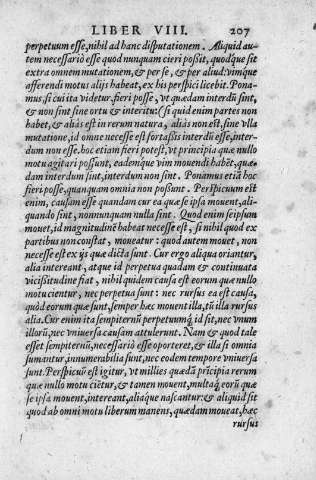 LIBER VIII. 207
perpetuum esse, nihil ad hanc disputationem. Aliquid au-
tem necessariò esse quod nunquam cieri possit, quodque sit
extra omnem mutationem, & per se, & per aliud: vimque
afferendi motus alijs habeat, ex his perspici licebit. Pona-
mus, si cui ita videtur, fieri posse, vt quædam interdũ sint,
& non sint sine ortu & interitu: (si quid enim partes non
habet, & aliàs est in rerum natura, aliàs non est, sine vlla
mutatione, id omne necesse est fortaßis interdũ esse, inter-
dum non esse. hoc etiam fieri potest, vt principia quæ nullo
motu agitari possunt, eademque vim mouendi habẽt, quæ-
dam interdum sint, interdum non sint. Ponamus etiã hoc
fieri posse, quanquam omnia non possunt. Perspicuum est
enim, causam esse quandam cur ea quæ se ipsa mouent, ali-
quando sint, nonnunquam nulla sint. Quod enim seipsum
mouet, id magnitudinẽ habeat necesse est, si nihil quod ex
partibus non constat, moueatur: quod autem mouet, non
necesse est ex ijs quæ dicta sunt. Cur ergo aliqua oriantur,
alia intereant, atque id perpetua quadam & continuata
vicißitudine fiat, nihil quidem causa est eorum quæ nullo
motu cientur, nec perpetua sunt: nec rursus ea est causa,
quòd eorum quæ sunt, semper hæc mouent illa, tũ illa rursus
alia. Cur enim ita sempiternũ perpetuumq́ id sit, nec vnum
illorũ, nec vniuersa causam attulerunt. Nam & quod tale
esset sempiternũ, necessariò esse oporteret, & illa si omnia
sumantur, innumerabilia sunt, nec eodem tempore vniuersa
sunt. Perspicuũ est igitur, vt millies quædã prĩcipia rerum
quæ nullo motu ciẽtur, & tamen mouent, multaq́ eorũ quæ
se ipsa mouent, intereant, aliaque nascantur: & aliquid sit
quod ab omni motu liberum manens, quædam moueat, hæc
rursus